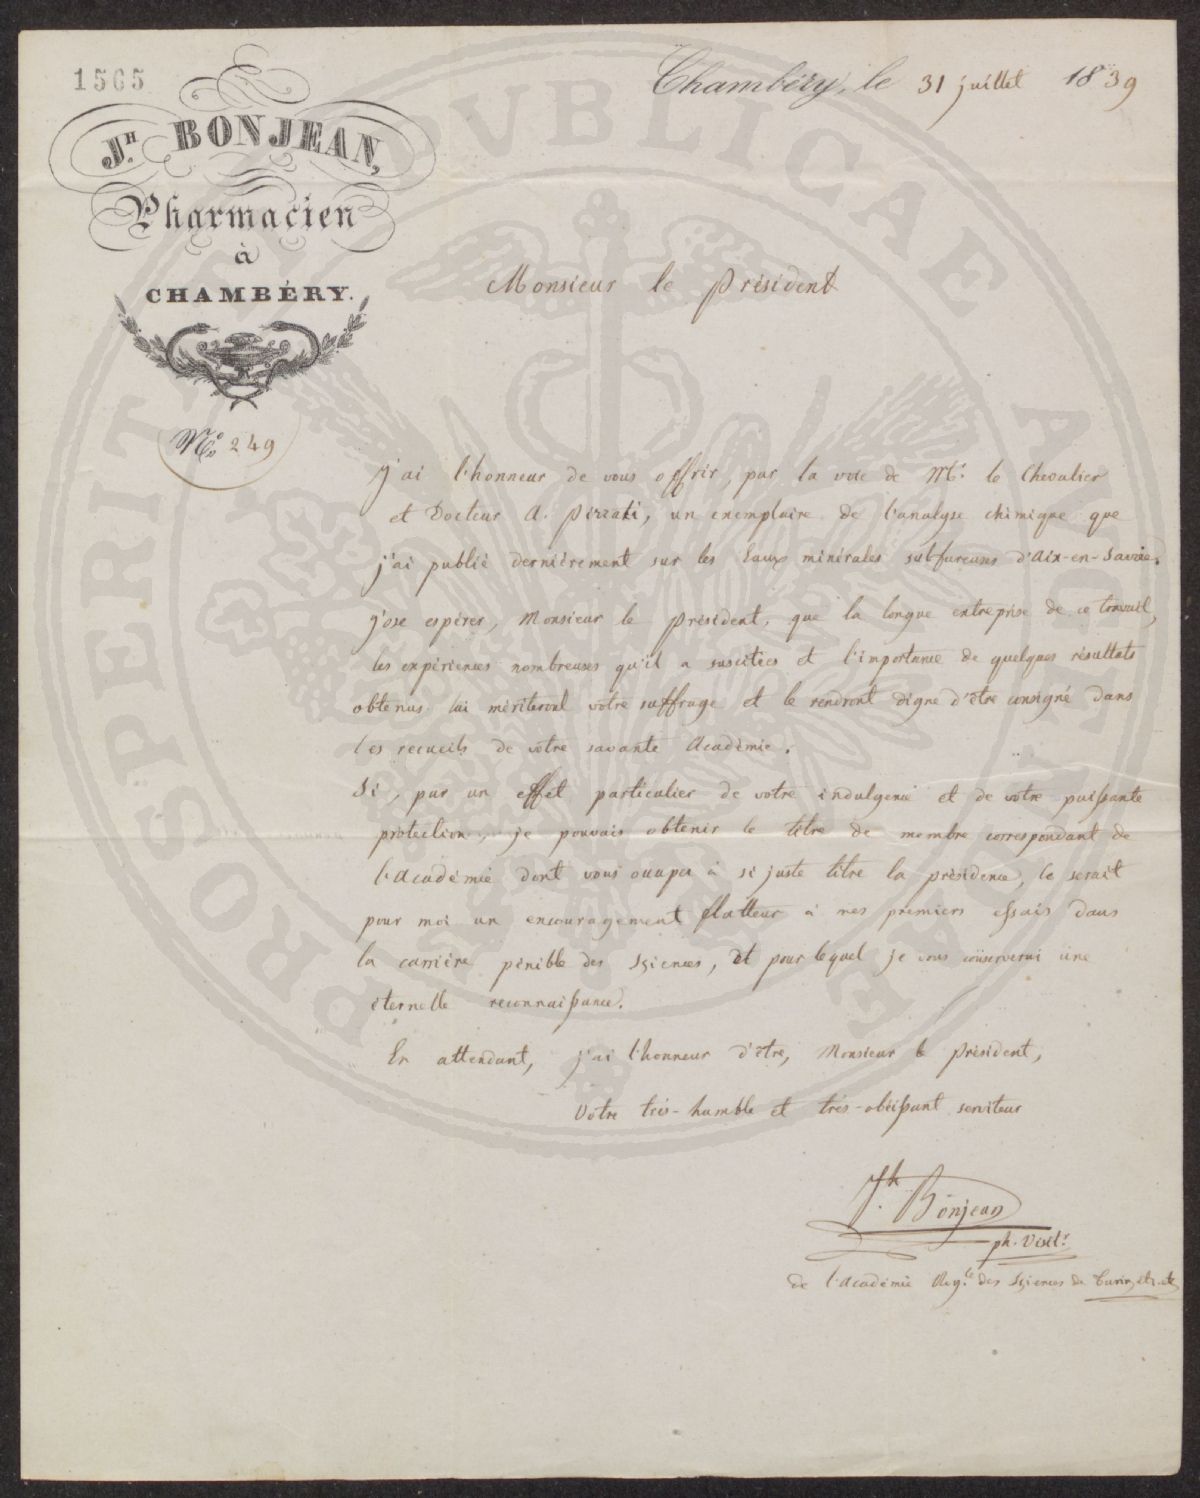 1565
Jh. BONJEAN,
Pharmacien
à
CHAMBÉRY.
No 249
Chambéry, le 31 juillet 1839
Monsieur le Président
J'ai l'honneur de vous offrir, par la voie de Mr. le Chevalier
et Docteur A. Pizzati, un exemplaire de l'analyse chimique que
j'ai publié dernièrement sur les Eaux minérales sulfureuses d'Aix-en-Savoie.
J'ose espérer, Monsieur le Président, que la longue entreprise de ce travail,
les expériences nombreuses qu'il a suscitées et l'importance de quelques résultats
obtenus lui mériteront votre suffrage et le rendront digne d'être consigné dans
les recueils de votre savante Académie.
Si, par un effet particulier de votre indulgence et de votre puissante
protection, je pouvais obtenir le titre de membre correspondant de
l'Académie dont vous occupez à si juste titre la présidence, ce serait
pour moi un encouragement flatteur à mes premiers essais dans
la carrière pénible des Sciences, et pour lequel je vous conserverai une
éternelle reconnaissance.
En attendant, j'ai l'honneur d'être, Monsieur le Président,
Votre très-humble et très-obéissant serviteur
Jh. Bonjean
ph. Visitr.
de l'Académie Roy.le des Sciences de Turin, etc. etc.
PROSPERITATI PVBLICAE AVGENDAE